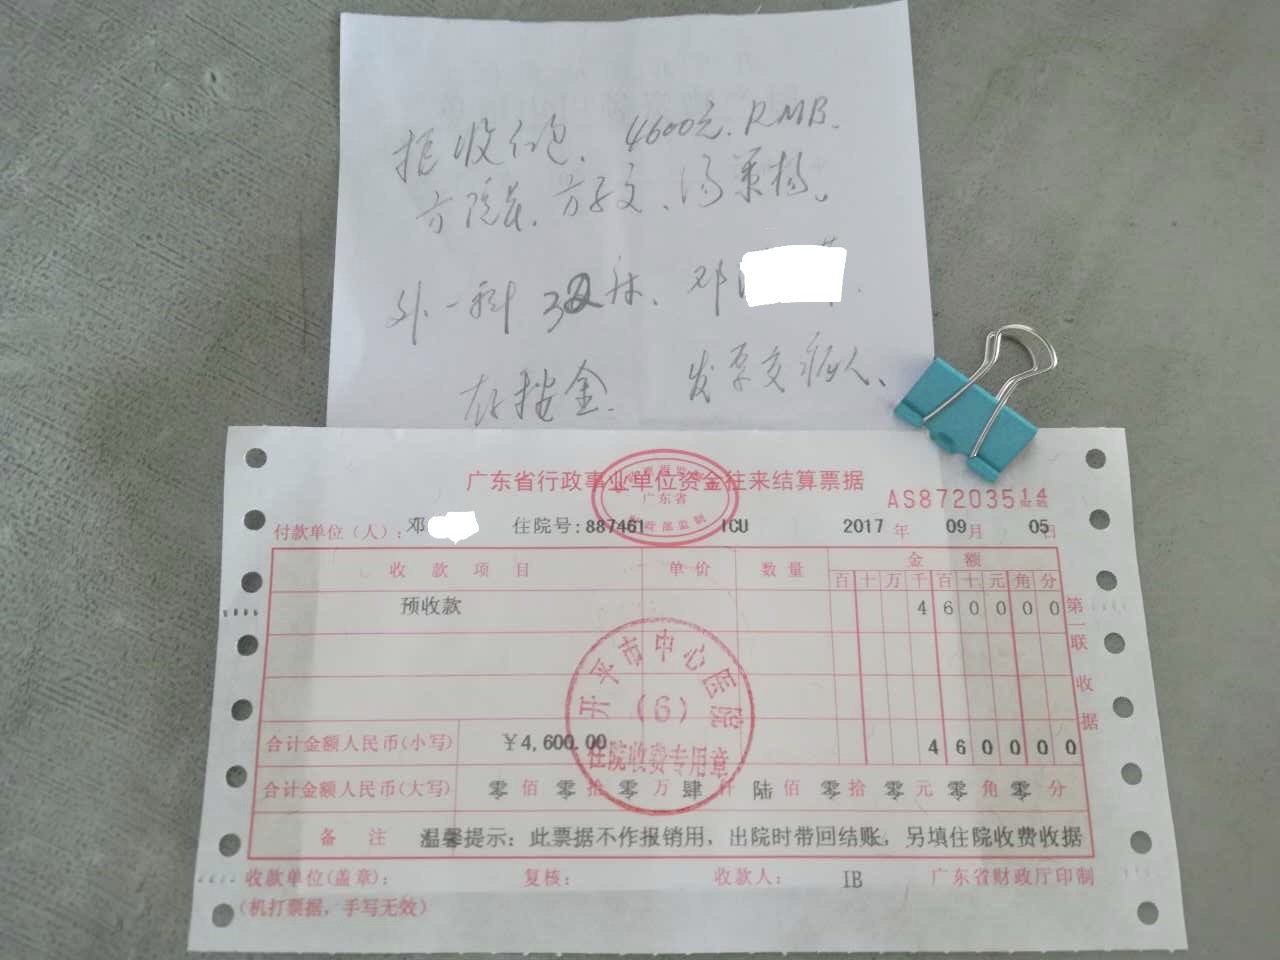 拒收红包、4600元.RMB.
方院芬.方子文、汤策杨。
外一科 32床、邓
存按金. 发票交病人、
广东省行政事业单位资金往来结算票据
广东省
AS87203514
付款单位(人)：邓 住院号:887461 ICU 2017 年 09 月 05 日
收款项目 单价 数量 金额
百 十 万 千 百 十 元 角 分
预收款 4 6 0 0 0 0
第一联 收据
开平市中心医院
(6)
住院收费专用章
合计金额人民币(小写) ￥4,600.00 4 6 0 0 0 0
合计金额人民币(大写) 零 佰 零 拾 零 万 肆 仟 陆 佰 零 拾 零 元 零 角 零 分
备注 温馨提示：此票据不作报销用，出院时带回结账，另填住院收费收据
收款单位(盖章)： 复核： 收款人： IB 广东省财政厅印制
(机打票据，手写无效)